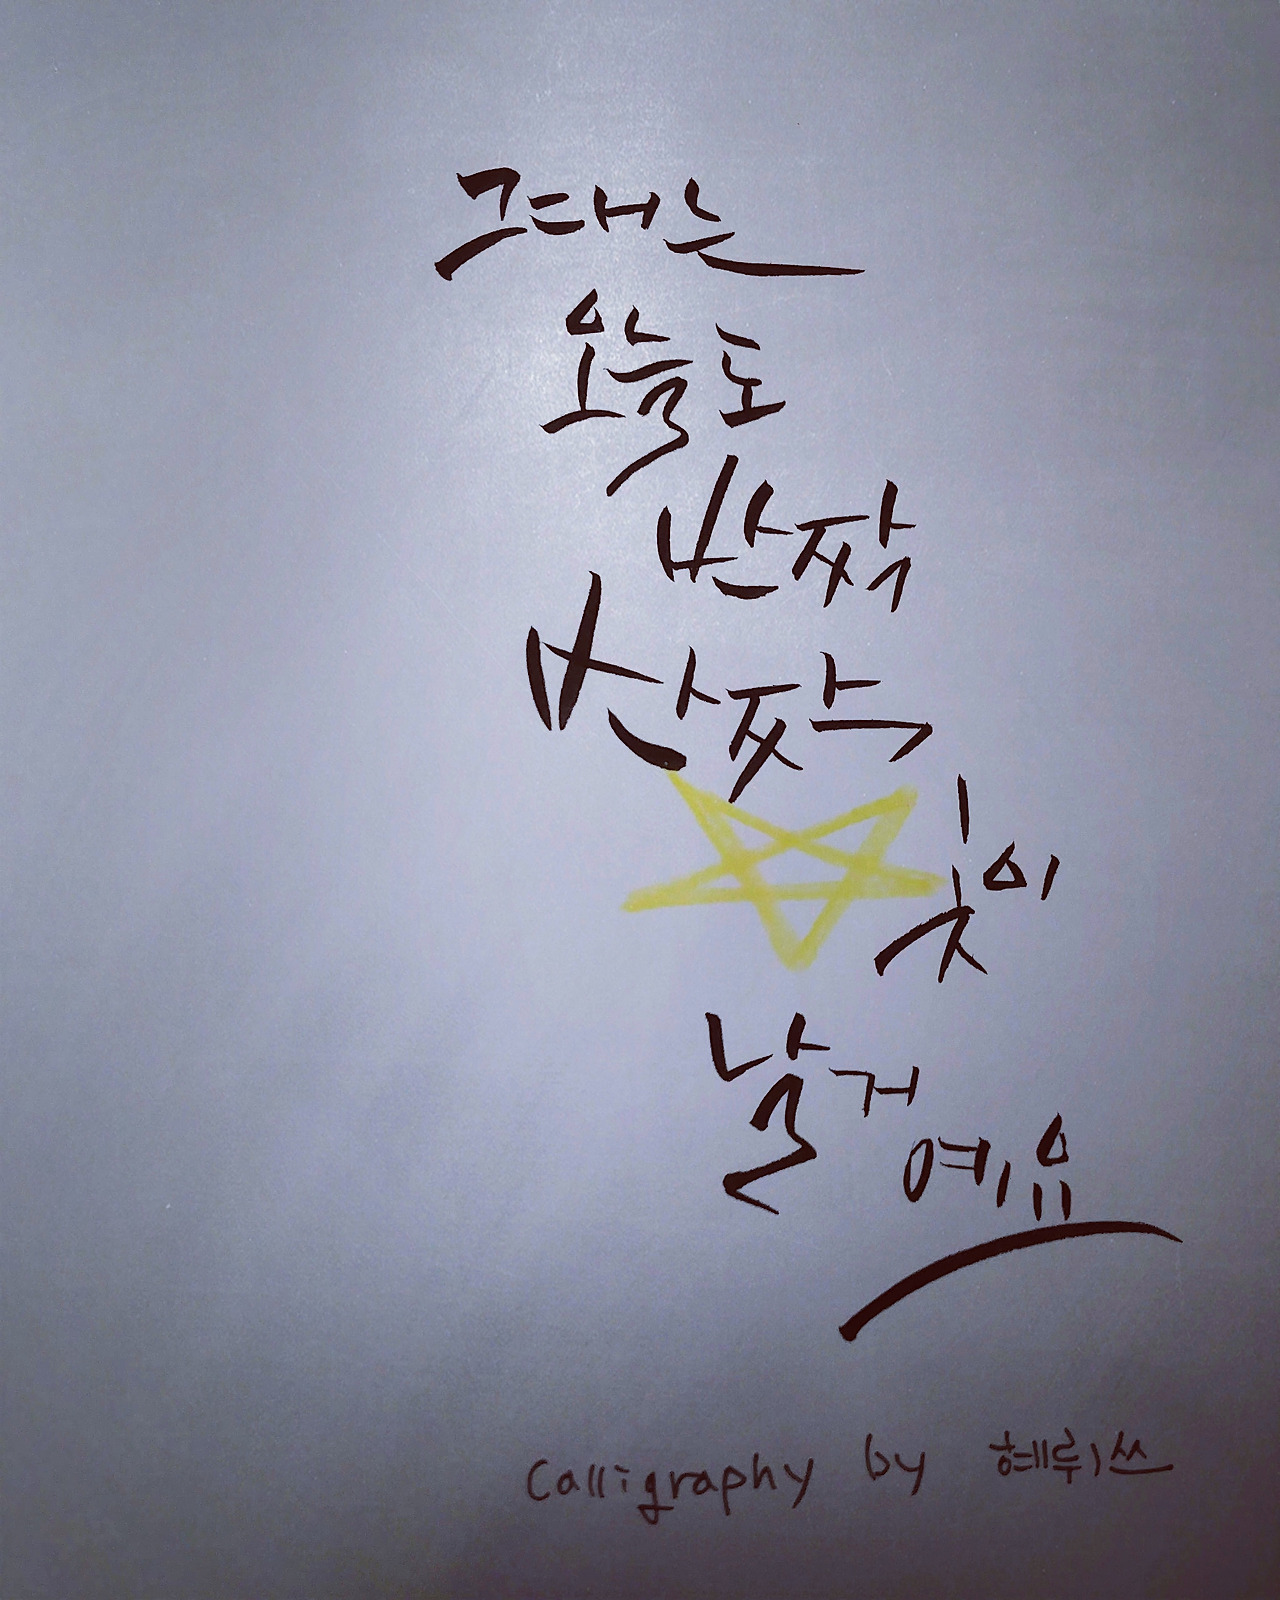 그대는
오늘도
반짝
반짝
빛이
날거예요
Calligraphy by 혜뤼쓰